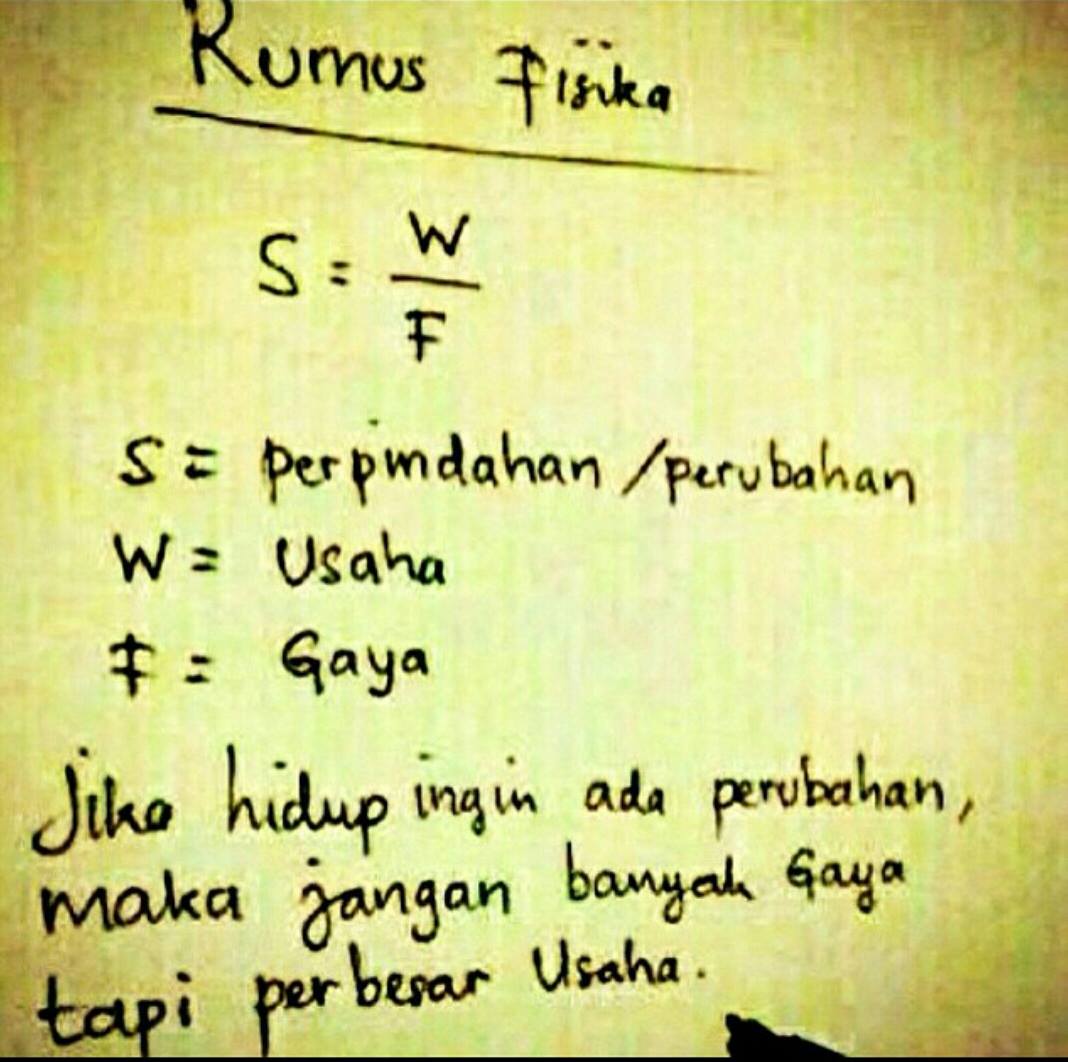 Rumus Fisika
S = W
F
S = perpindahan / perubahan
W = Usaha
F = Gaya
Jika hidup ingin ada perubahan,
maka jangan banyak Gaya
tapi perbesar Usaha.